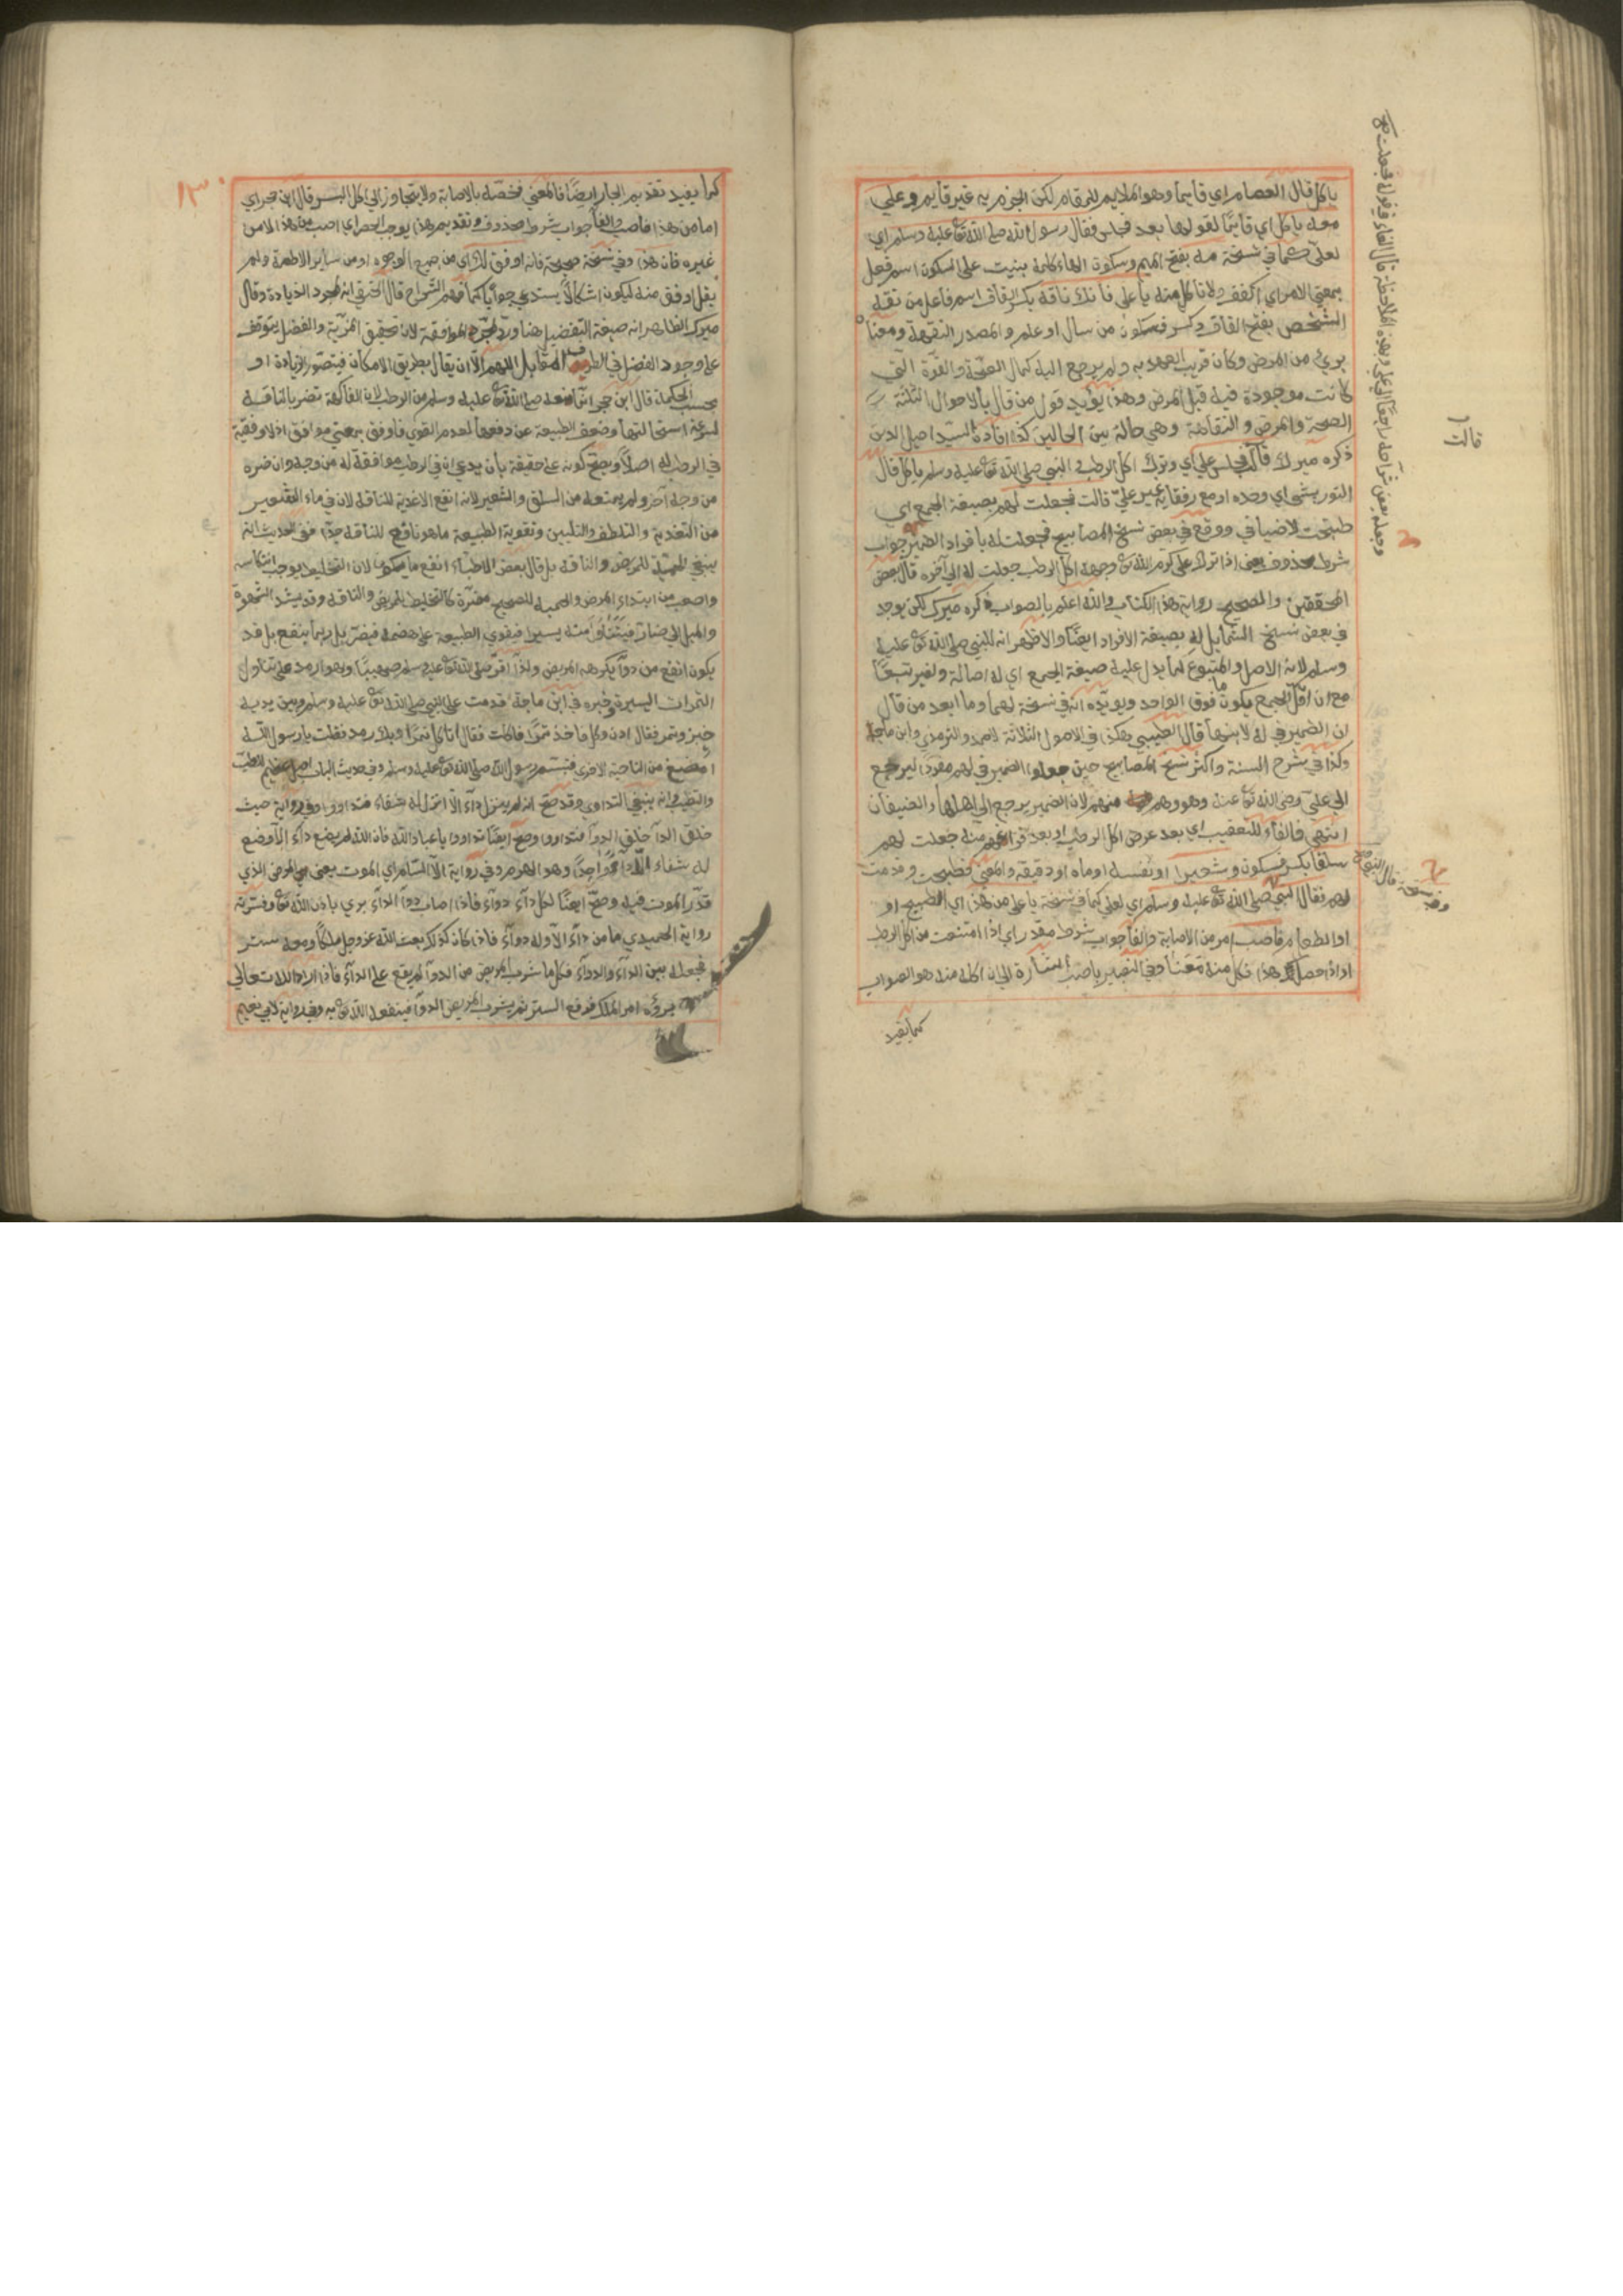 ياكل قال العصام اي قائما وهو الملايم للمقام لكن الجزم به غير قايم وعلي
معه ياكل اي قائما لقولها بعد فجلس فقال رسول الله صلى الله تع عليه وسلم اي
لعلي كما في نسخة مه بفتح الميم وسكون الهاء كلمة بنيت على السكون اسم فعل
بمعنى الامر اي اكفف ولا تاكل منه يا علي فانك ناقه بكسر القاف اسم فاعل من نقه
الشخص بفتح القاف وكسر فسكون من سال او علم والمصدر النقهة ومعناه
برئ من المرض وكان قريب العهد به ولم يرجع اليه كمال الصحة والقوة التي
كانت موجودة فيه قبل المرض وهذا يؤيد قول من قال بالاحوال الثلثة
الصحة والمرض والنقاهة وهي حالة بين الحالين كذا افاده السيد اصيل الدين
ذكره ميرك قالت فجلس علي اي وترك اكل الرطب والنبي صلى الله تع عليه وسلم ياكل قال
التوربشتي اي وحده او مع رفقايه غير علي قالت فجعلت لهم بصيغة الجمع اي
طبخت لاضيافي ووقع في بعض نسخ المصابيح فجعلت له بافراد الضمير جواب
شرط محذوف يعني اذا ترك علي كرم الله تع وجهه اكل الرطب جعلت له الى آخره قال بعض
المحققين والصحيح رواية هذا الكتاب والله اعلم بالصواب ذكره ميرك لكن يوجد
في بعض نسخ الشمايل له بصيغة الافراد ايضا والاظهر انه للنبي صلى الله تع عليه
وسلم لانه الاصل والمتبوع كما يدل عليه صيغة الجمع اي له اصالة ولغيره تبعا
مع ان اقل الجمع يكون ما فوق الواحد ويويده انه في نسخة لهما وما ابعد من قال
ان الضمير في له لابنها قال الطيبي هكذا في الاصول الثلاثة لاحمد والترمذي وابن ماجة
وكذا في شرح السنة واكثر نسخ المصابيح حين جعلوا الضمير في لهم مفردا ليرجع
الى علي رضي الله تع عنه وهو وهم منهم لان الضمير يرجع الى اهلها والضيفان
انتهى فالفاء للتعقيب اي بعد عرض اكل الرطب او بعد فراغهم منه جعلت لهم
سلقا بكسر فسكون وشعيرا او نفسه او ماه او دقيقه والمعنى فطبخت وقدمت
لهم فقال النبي صلى الله تع عليه وسلم اي لعلي كما في نسخة يا علي من هذا اي الطبيخ او
او الطعام فاصب امر من الاصابة والفا جواب شرط مقدر اي اذا امتنعت من اكل الرطب
او اذا حصل هذا فكل منه معنا وفي التعبير باصب اشارة الى ان اكله منه هو الصواب
كما يفيد
وجعله بعض شراحه راجعا الى علي وبهذه الملاحظة قال الفاء في قوله فجعلت
قالت
وفي نسخة قال النبي
١٣٠
كما يفيد تقديم الجار ايضا فالمعنى فخصه بالاصابة ولا يتجاوز الى اكل البسر قال ابن حجر اي
اما من هذا فاصب والفا جواب شرط محذوف وتقديم هذا يوجب الحصر اي اصب من هذا لا من
غيره فان هذا وفي نسخة صحيحة فانه اوفق لك اي من جميع الوجوه او من ساير الاطعمة ولم
يقل اوفق منه ليكون اشكالا يستدعي جوابا كما فهم الشراح قال الحنفي انه لمجرد الزيادة وقال
ميرك الظاهر انه صيغة التفضيل هنا ورد لمجرد الموافقة لان تحقيق المزية والفضل يتوقف
على وجود الفضل في الطرف المقابل اللهم الا ان يقال بطريق الامكان فيتصور الزيادة او
بحسب الحكمة قال ابن حجر انما منعه صلى الله تع عليه وسلم من الرطب لان الفاكهة تضر بالناقه
لسرعة استحالتها وضعف الطبيعة عن دفعها لعدم القوي فاوفق بمعنى موافق اذ لا اوفقية
في الرطب له اصلا ويصح كونه على حقيقة بان يدعي ان في الرطب موافقة له من وجه وان ضره
من وجه آخر ولم يمنعه من السلق والشعير لانه انفع الاغذية للناقه لان في ماء الشعير
من التغذية والتلطف والتليين وتقوية الطبيعة ما هو نافع للناقه جدا ففي الحديث انه
ينبغي الحمية للمريض والناقه بل قال بعض الاطباء انفع ما يكون لان التخليط يوجب انتكاسه
واصعب من ابتداء المرض والحمية للصحيح مضرة كالتخليط للمريض والناقه وقد يشتد الشهوة
والميل الى ضار فيتناول منه يسيرا فيقوي الطبيعة على هضمه فيضر بل ربما ينفع بل قد
يكون انفع من دوا يكرهه المريض ولذا اقر صلى الله تع عليه وسلم صهيبا وهو ارمد على تناول
التمرات اليسيرة وخبره في ابن ماجة قدمت على النبي صلى الله تع عليه وسلم وبين يديه
خبز وتمر فقال ادن وكل فاخذ تمرا فاكلت فقال اتاكل تمرا وبك رمد فقلت يا رسول الله
امضغ من الناحية الاخرى فتبسم رسول الله صلى الله تع عليه وسلم وفي حديث الباب اصل عظيم للطب
والتطبب وانه ينبغي التداوي وقد صح ان الله لم ينزل داء الا انزل له شفاء فتداووا وفي رواية حيث
خلق الدا خلق الدوا فتداووا وصح ايضا تداووا يا عباد الله فان الله لم يضع داء الا وضع
له شفاء الا داء واحدا وهو الهرم وفي رواية الا السام اي الموت يعني المرض الذي
قدر الموت فيه وصح ايضا لكل داء دواء فاذا اصاب دوا الداء برئ باذن الله تع وفسرته
رواية الحميدي ما من داء الا وله دواء فاذا كان كذلك بعث الله عز وجل ملكا ومعه ستر
فجعله بين الداء والدواء فكلما شرب المريض من الدوا لم يقع على الداء فاذا اراد الله تعالى
برؤه امر الملك فرفع الستر ثم يشرب المريض الدوا فينفعه الله تع به وفي رواية لابي نعيم